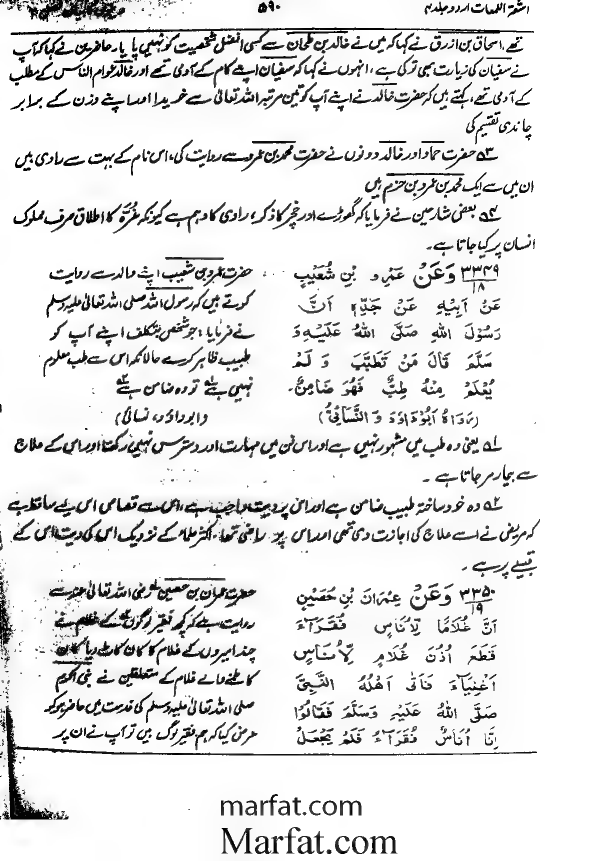 اشعۃ اللمعات اردو جلد ۴
۵۹۰
تھے، اسحاق بن ازرق نے کہا کہ میں نے خالد بن طحان سے کسی افضل شخصیت کو نہیں پایا، حاضرین نے کہا کہ آپ
نے سفیان کی زیارت بھی تو کی ہے، انہوں نے کہا کہ سفیان اپنے کام کے آدمی تھے اور خالد عوام الناس کے مطلب
کے آدمی تھے، کہتے ہیں کہ حضرت خالد نے اپنے آپ کو تین مرتبہ اللہ تعالیٰ سے خریدا اور اپنے وزن کے برابر
چاندی تقسیم کی
۵۳ حضرت حماد اور خالد دونوں نے حضرت محمد بن عمرو سے روایت کی، اس نام کے بہت سے راوی ہیں
ان میں سے ایک محمد بن عمرو بن حزم ہیں
۵۴ بعض شارحین نے فرمایا کہ گھوڑے اور خچر کا ذکر، راوی کا وہم ہے کیونکہ غُرّہ کا اطلاق صرف مملوک
انسان پر کیا جاتا ہے۔
۳۳۴۹/۱۸ وَعَنْ عَمْرِو بْنِ شُعَيْبٍ
عَنْ اَبِيْهِ عَنْ جَدِّهٖ اَنَّ
رَسُوْلَ اللهِ صَلَّى اللهُ عَلَيْهِ وَ
سَلَّمَ قَالَ مَنْ تَطَبَّبَ وَ لَمْ
يُعْلَمْ مِنْهُ طِبٌّ فَهُوَ ضَامِنٌ۔
(رَوَاهُ اَبُوْدَاوُدَ وَ النَّسَائِيُّ)
حضرت عمرو بن شعیب اپنے والد سے روایت
کرتے ہیں کہ رسول اللہ صلی اللہ تعالیٰ علیہ وسلم
نے فرمایا: جو شخص بتکلف اپنے آپ کو
طبیب ظاہر کرے حالانکہ اس سے طب معلوم
نہیں ہے تو وہ ضامن ہے
(ابو داؤد، نسائی)
۵۱ یعنی وہ طب میں مشہور نہیں ہے اور اس فن میں مہارت اور دسترس نہیں رکھتا اور اس کے علاج
سے بیمار مر جاتا ہے۔
۵۲ وہ خود ساختہ طبیب ضامن ہے اور اس پر دیت واجب ہے، اس سے قصاص اس لیے ساقط ہے
کہ مریض نے اسے علاج کی اجازت دی تھی اور اس پر راضی تھا، اکثر علماء کے نزدیک اس کی دیت اس کے
قبیلے پر ہے۔
۳۳۵۰/۱۹ وَعَنْ عِمْرَانَ بْنِ حُصَيْنٍ
اَنَّ غُلَامًا لِاُنَاسٍ فُقَرَآءَ
قَطَعَ اُذُنَ غُلَامٍ لِاُنَاسٍ
اَغْنِيَاءَ فَاَتٰى اَهْلُهُ النَّبِيَّ
صَلَّى اللهُ عَلَيْهِ وَسَلَّمَ فَقَالُوْا
اِنَّا اُنَاسٌ فُقَرَآءُ فَلَمْ يَجْعَلْ
حضرت عمران بن حصین رضی اللہ تعالیٰ عنہ سے
روایت ہے کہ کچھ فقیر لوگوں کے غلام نے
چند امیروں کے غلام کا کان کاٹ دیا کان
کاٹنے والے غلام کے متعلقین نے نبی اکرم
صلی اللہ تعالیٰ علیہ وسلم کی خدمت میں حاضر ہو کر
عرض کیا کہ ہم فقیر لوگ ہیں تو آپ نے ان پر
marfat.com
Marfat.com